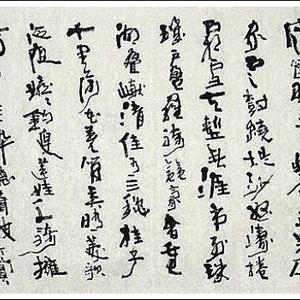 家雲樹繞堤沙怒濤捲
霜雪天塹無涯市列珠
璣戶盈羅綺競豪奢重
湖疊巘清佳有三秋桂子
十里荷花羌管弄晴菱歌
泛夜嬉嬉釣叟蓮娃千騎擁